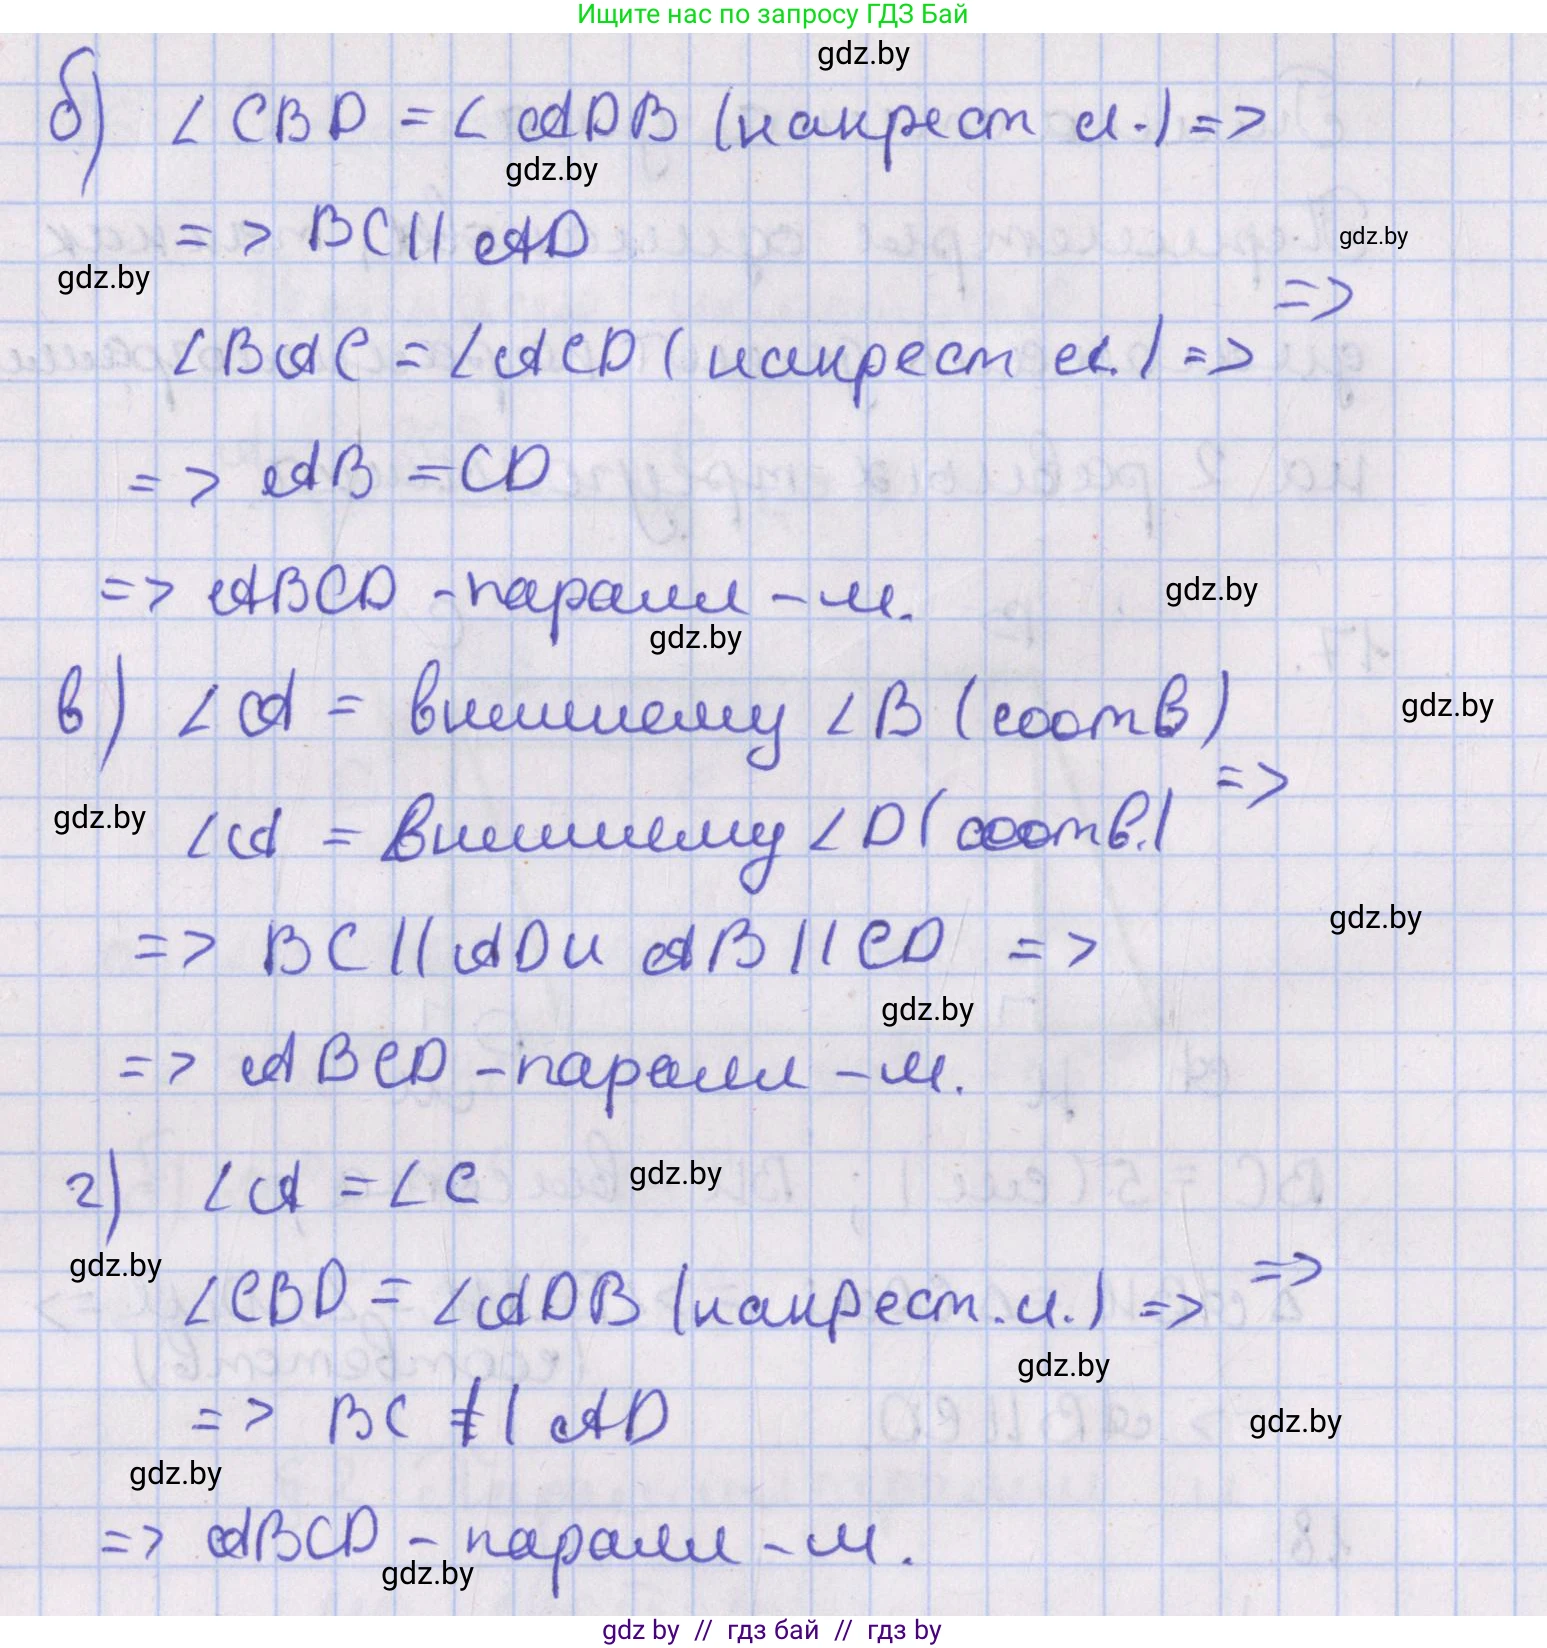 Ищите нас по запросу ГДЗ Бай
gdz.by
б) ∠CBD = ∠ADB (накрест л.) =>
gdz.by
=> BC || AD
gdz.by
gdz.by
=>
∠BAC = ∠ACD (накрест л.) =>
=> AB = CD
=> ABCD - паралл - м.
gdz.by
gdz.by
в) ∠A = внешнему ∠B (соотв)
gdz.by
=>
gdz.by
∠A = внешнему ∠D (соотв.)
gdz.by
=> BC || AD и AB || CD =>
gdz.by
=> ABCD - паралл - м.
г) ∠A = ∠C
gdz.by
gdz.by
=>
∠CBD = ∠ADB (накрест. л.) =>
gdz.by
=> BC || AD
gdz.by
gdz.by
=> ABCD - паралл - м.
gdz.by
gdz by // гдз бай // гдз by